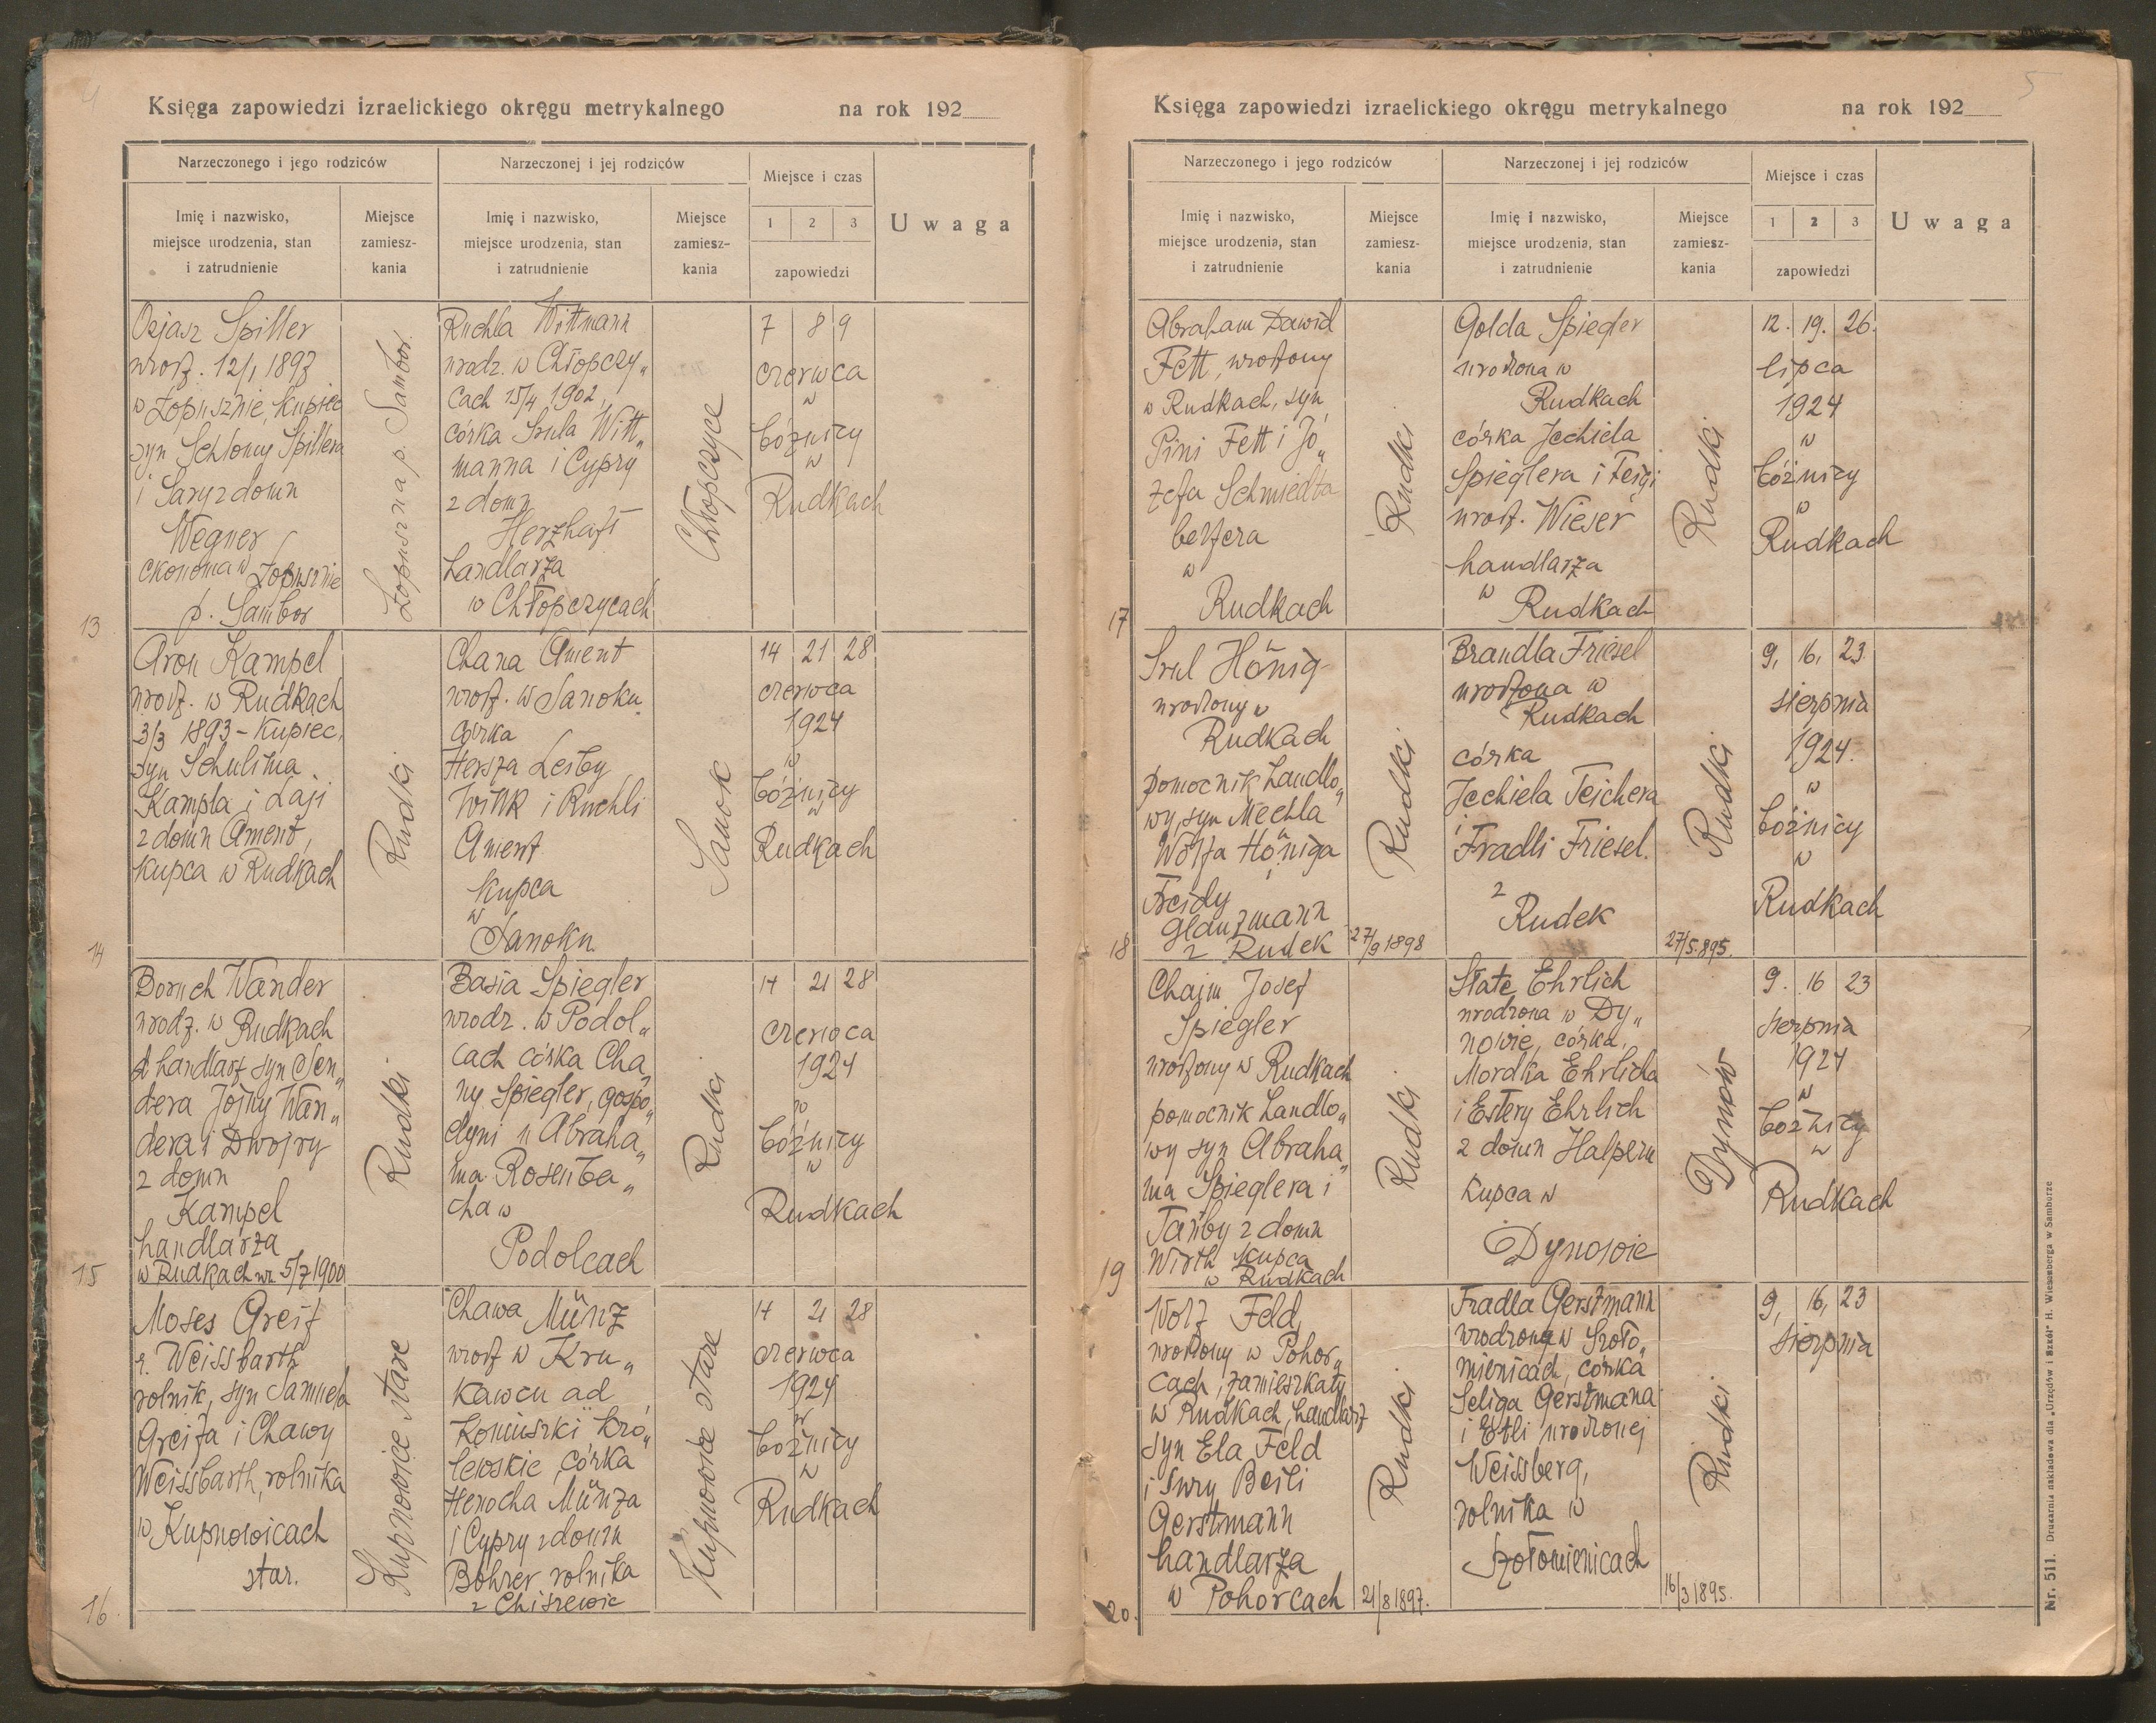 4
Księga zapowiedzi izraelickiego okręgu metrykalnego na rok 192
Narzeczonego i jego rodziców
Narzeczonej i jej rodziców
Miejsce i czas
Uwaga
Imię i nazwisko,
miejsce urodzenia, stan
i zatrudnienie
Miejsce
zamiesz-
kania
Imię i nazwisko,
miejsce urodzenia, stan
i zatrudnienie
Miejsce
zamiesz-
kania
1 2 3
zapowiedzi
13
Ozjasz Spiller
urodz. 12/1 1897
w Łopusznie, kupiec
syn Schlomy Spillera
i Sary z domu
Wegner
ekonoma w Łopusznie
p. Sambor
Łopuszna p. Sambor.
Ruchla Wittmann
urodz. w Chłopczy„
cach 15/4 1902,
córka Srula Witt„
manna i Cypry
z domu
Herzhaft
handlarza
w Chłopczycach
Chłopczyce
7 8 9
czerwca
w
bóżnicy
w
Rudkach
14
Aron Kampel
urodz. w Rudkach
3/3 1893 - kupiec,
syn Schulima
Kampla i Łaji
z domu Ament,
kupca w Rudkach
Rudki
Chana Ament
urodz. w Sanoku
córka
Hersza Leiby
Wilk i Ruchli
Ament
kupca
w
Sanoku
Sanok
14 21 28
czerwca
1924
w
bóżnicy
w
Rudkach
15
Boruch Wander
urodz. w Rudkach
handlarz syn Sen„
dera Jojny Wan„
dera i Dwojry
z domu
Kampel
handlarza
w Rudkach ur. 5/7 1900
Rudki
Basia Spiegler
urodz. w Podol„
cach córka Cha„
ny Spiegler, gospo„
dyni u Abraha„
ma Rosenba„
cha w
Podolcach
Rudki
14 21 28
czerwca
1924
w
bóżnicy
w
Rudkach
16.
Moses Greif
r. Weissbarth
rolnik, syn Samuela
Greifa i Chawy
Weissbarth, rolnika
w Kupnowicach
star.
Kupnowice stare
Chawa Münz
urodz w Kru„
kawcu ad
Koniuszki kró„
lewskie, córka
Henocha Münza
i Cypry z domu
Bohrer rolnika
z Chiszewic
Kupnowice stare
14 21 28
czerwca
1924
w
bóżnicy
w
Rudkach
5
Księga zapowiedzi izraelickiego okręgu metrykalnego na rok 192
Narzeczonego i jego rodziców
Narzeczonej i jej rodziców
Miejsce i czas
Uwaga
Imię i nazwisko,
miejsce urodzenia, stan
i zatrudnienie
Miejsce
zamiesz-
kania
Imię i nazwisko,
miejsce urodzenia, stan
i zatrudnienie
Miejsce
zamiesz-
kania
1 2 3
zapowiedzi
17
Abraham Dawid
Fett, urodzony
w Rudkach, syn
Pini Fett i Jó„
zefa Schmiedta
belfera
w
Rudkach
Rudki
Golda Spiegler
urodzona w
Rudkach
córka Jechiela
Spieglera i Feigi
urodz. Wieser
handlarza
w Rudkach
Rudki
12. 19. 26.
lipca
1924
w
bóżnicy
w
Rudkach
18
Srul Hönig
urodzony w
Rudkach
pomocnik handlo„
wy, syn Mechla
Wolfa Höniga
i
Freidy
Glanzmann
z Rudek
Rudki
27/9 1898
Brandla Friesel
urodzona w
Rudkach
córka
Jechiela Teichera
i
Fradli Friesel.
z
Rudek
Rudki
27/5.895.
9, 16, 23
sierpnia
1924.
w
bóżnicy
w
Rudkach
19
Chaim Josef
Spiegler
urodzony w Rudkach
pomocnik handlo„
wy syn Abraha„
ma Spieglera i
Tauby z domu
Wirth kupca
w Rudkach
Rudki
State Ehrlich
urodzona w Dy„
nowie, córka
Mordka Ehrlicha
i Estery Ehrlich
z domu Halpern
kupca w
Dynowie
Dynów
9. 16 23
sierpnia
1924
w
bóżnicy
w
Rudkach
20.
Wolf Feld,
urodzony w Pohor„
cach, zamieszkały
w Rudkach, handlarz
syn Ela Feld
i Sury Beili
Gerstmann
handlarza
w Pohorcach
Rudki
21/8 1897.
Fradla Gerstmann
urodzona w Szoło„
mienicach, córka
Seliga Gerstmana
i Estli urodzonej
Weissberg,
rolnika w
Szołomienicach
Rudki
16/3 1895.
9, 16, 23
sierpnia
Nr. 511. Drukarnia nakładowa dla „Urzędów i Szkół" H. Wiesenberga w Samborze